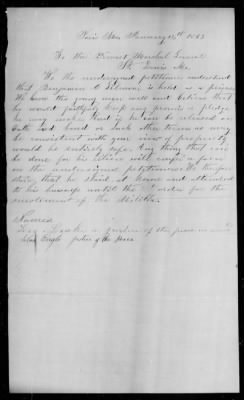 January 14th 1863
To the Provost Marshal General
St. Louis Mo.
We the undersigned petitioners understand
that Benjamin is held as a prisoner
We know this young man well and believe that
he would faithfully keep any promise or pledge
he may make And if he can be released on
Oath and bond or such other terms as may
be consistent with your view of propriety
would be entirely safe. Any thing that can
be done for his release will confer a favor
on the undersigned petitioners. We
that he staid at home and attended
to his business until the order for the
enrollment of the Militia.
Names
justice of the peace
justice of the peace